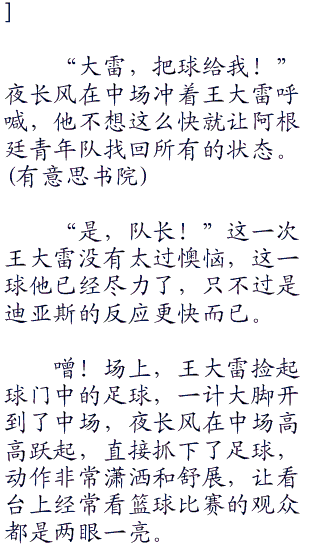 ]
“大雷，把球给我！”
夜长风在中场冲着王大雷呼
喊，他不想这么快就让阿根
廷青年队找回所有的状态。
(有意思书院)
“是，队长！”这一次
王大雷没有太过懊恼，这一
球他已经尽力了，只不过是
迪亚斯的反应更快而已。
噌！场上，王大雷捡起
球门中的足球，一计大脚开
到了中场，夜长风在中场高
高跃起，直接抓下了足球，
动作非常潇洒和舒展，让看
台上经常看篮球比赛的观众
都是两眼一亮。